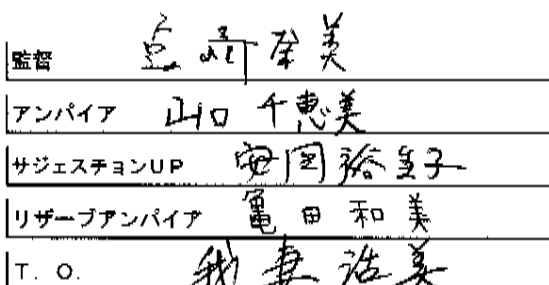 監督
アンパイア 山口 千恵美
サジェスチョンUP 安岡裕美子
リザーブアンパイア 亀田 和美
T. O. 我妻 浩美